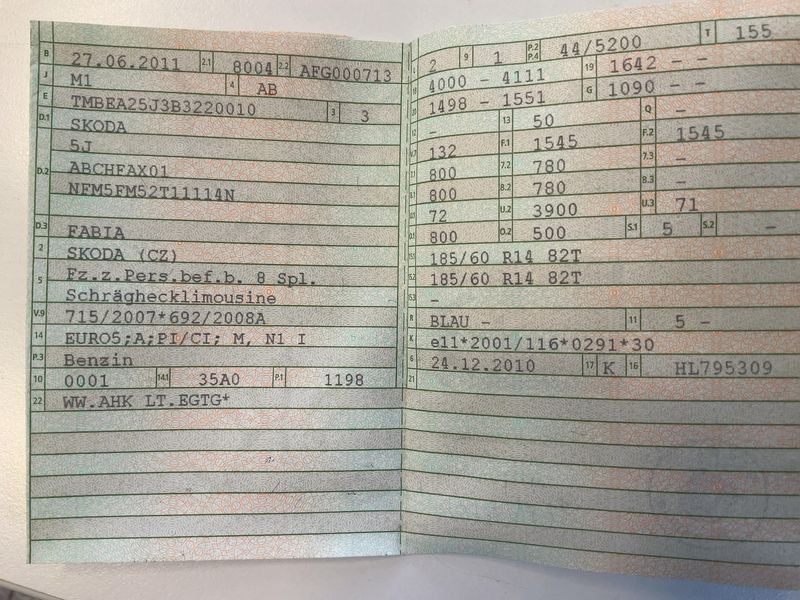 B 27.06.2011 2.1 8004 2.2 AFG000713
J M1 4 AB
E TMBEA25J3B3220010 3 3
D.1 SKODA
5J
D.2 ABCHFAX01
NFM5FM52T11114N
D.3 FABIA
2 SKODA (CZ)
5 Fz.z.Pers.bef.b. 8 Spl.
Schräghecklimousine
V.9 715/2007*692/2008A
14 EURO5;A;PI/CI; M, N1 I
P.3 Benzin
10 0001 14.1 35A0 P.1 1198
22 WW.AHK LT.EGTG*
L 2 9 1 P.2 P.4 44/5200 T 155
18 4000 - 4111 19 1642 - -
20 1498 - 1551 G 1090 - -
12 - 13 50 Q -
V.7 132 F.1 1545 F.2 1545
7.1 800 7.2 780 7.3 -
8.1 800 8.2 780 8.3 -
U.1 72 U.2 3900 U.3 71
O.1 800 O.2 500 S.1 5 S.2 -
15.1 185/60 R14 82T
15.2 185/60 R14 82T
15.3 -
R BLAU - 11 5 -
K e11*2001/116*0291*30
6 24.12.2010 17 K 16 HL795309
21